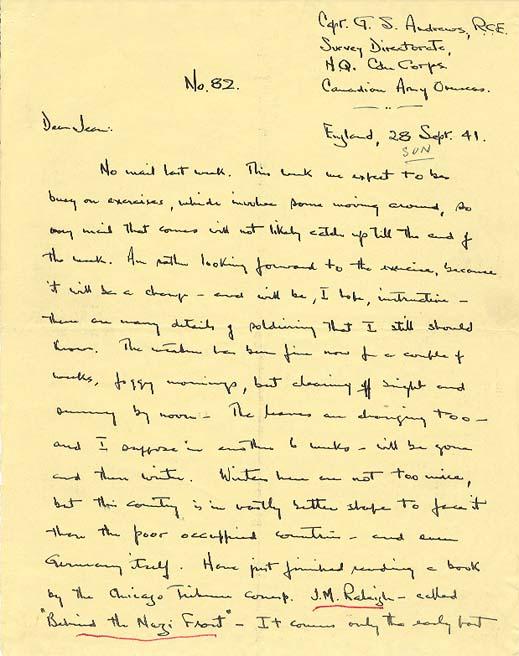 Capt. G. S. Andrews, R.C.E.
Survey Directorate,
H.Q. Cdn Corps.
Canadian Army Overseas.
No. 82.
England, 28 Sept. 41.
SUN
Dear Jean:
No mail last week. This week we expect to be
busy on exercises, which involve some moving around, so
any mail that comes will not likely catch up till the end of
the week. Am rather looking forward to the exercise, because
it will be a change - and will be, I hope, instructive -
there are many details of soldiering that I still should
know. The weather has been fine now for a couple of
weeks, foggy mornings, but clearing off bright and
sunny by noon - The leaves are changing too -
and I suppose in another 6 weeks - will be gone
and then winter. Winters here are not too nice,
but this country is in vastly better shape to face it
than the poor occupied countries - and even
Germany itself. Have just finished reading a book
by the Chicago Tribune corresp. J.M. Raleigh - called
"Behind the Nazi Front" - It covers only the early part